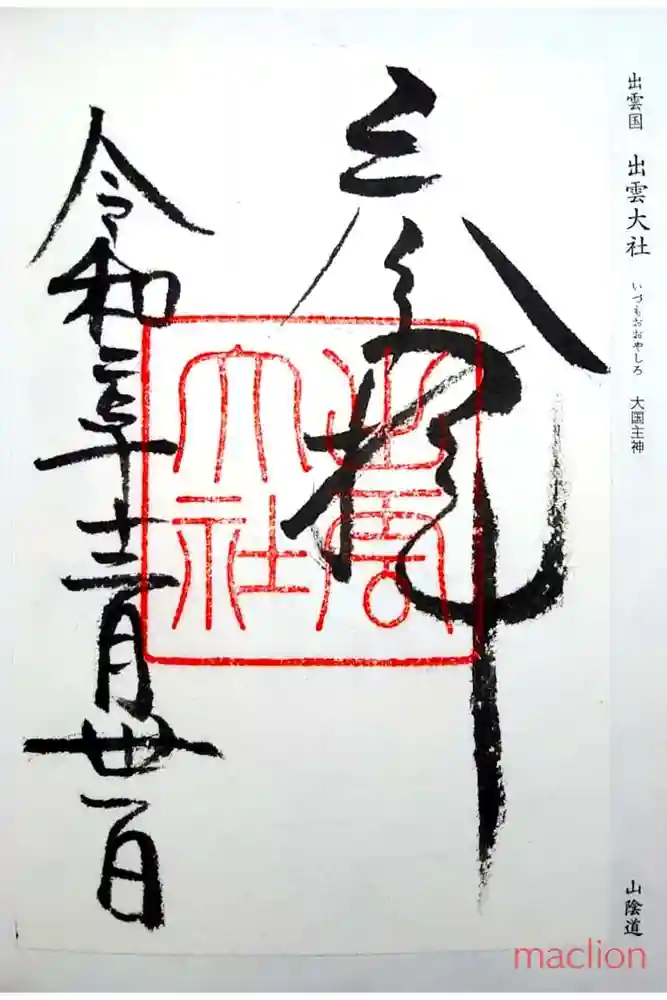 出雲国 出雲大社 いづもおおやしろ 大国主神
山陰道
参拝
出雲大社
令和年十二月卅一日
maclion